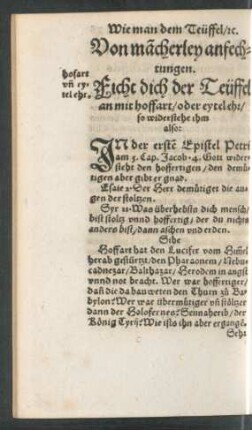 Wie man dem Teüffel/ꝛc.
Von mãcherley anfech-
tungen.
hofart
vñ ey-
tel eht.
Ficht dich der Teüffel
an mit hoffart/oder eytel eht/
so widerstehe ihm
also:
IN der erstẽ Epistel Petri
am 5. Cap. Jacob.4. Gott wider
steht den hoffertigen/den demü-
tigen aber gibt er gnad.
Esaie 2. Der Herr demütiget die au
gen der stoltzen.
Syr 11. Was überhebstu dich mensch/
bist stoltz vnd hoffertig/der du nichts
anders bist/dann aschen vnd erden.
Sihe
Hoffart hat den Lucifer vom Him̃el
herab gestürtzt/den Pharaonem/Nebu-
cadnezar/Balthazar/Herodem in angst
vnnd not bracht. Wer war hoffertiger/
daß die da bauweten den Thurn zů Ba-
bylon? Wer war übermütiger vñ stöltzer
dann der Holofernes? Sennaherib/der
König Tyri? Wie ists ihn aber ergangẽ.
Seht